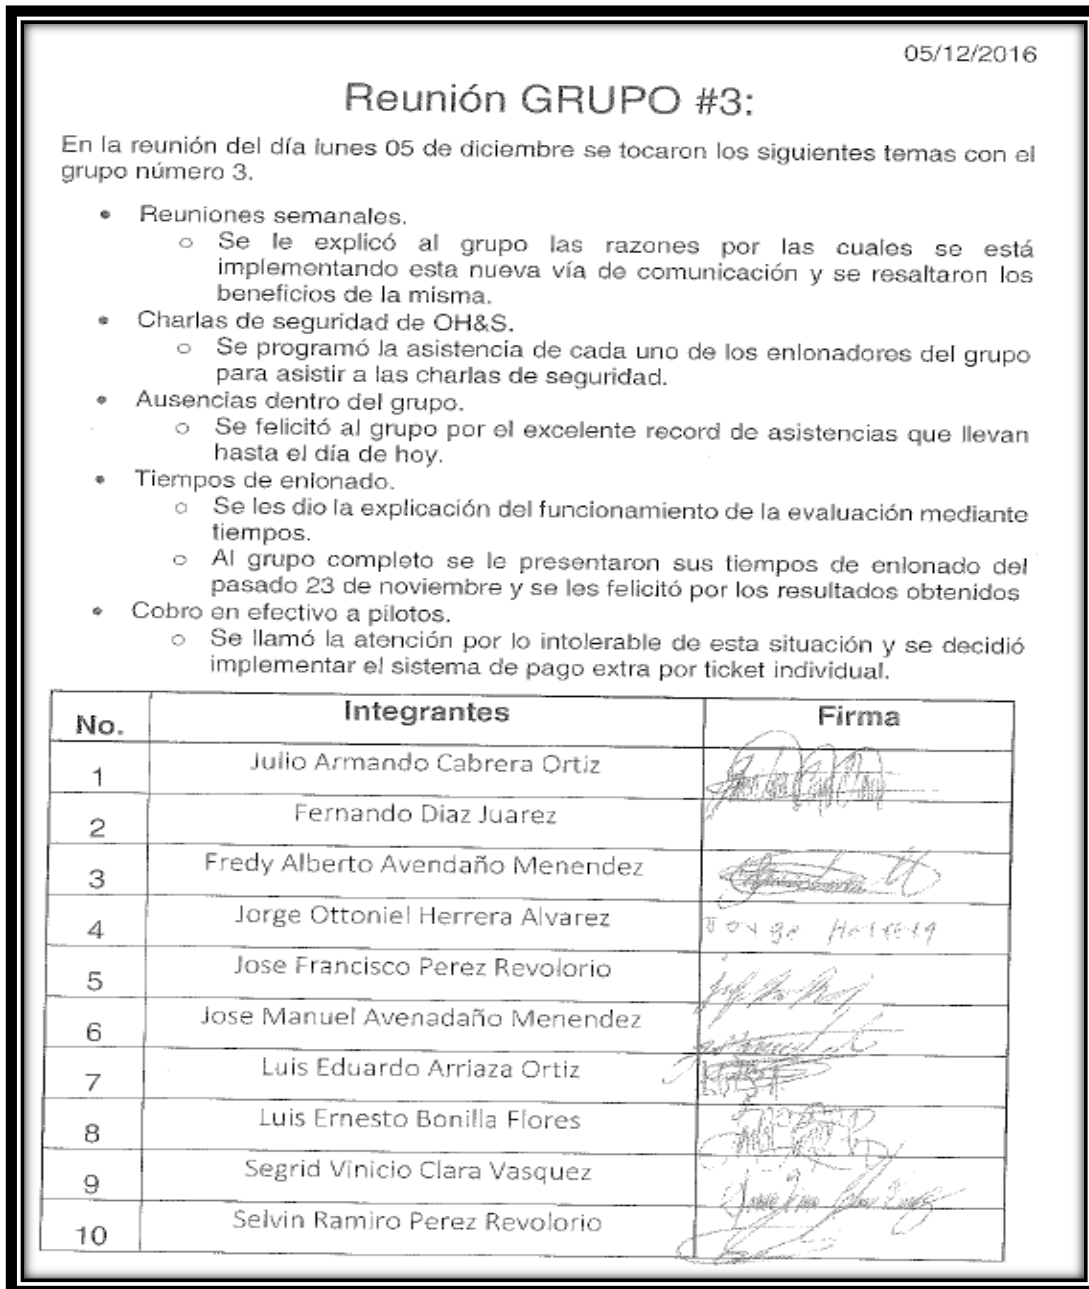 05/12/2016
Reunión GRUPO #3:
En la reunión del día lunes 05 de diciembre se tocaron los siguientes temas con el
grupo número 3.
• Reuniones semanales.
○ Se le explicó al grupo las razones por las cuales se está
implementando esta nueva vía de comunicación y se resaltaron los
beneficios de la misma.
• Charlas de seguridad de OH&S.
○ Se programó la asistencia de cada uno de los enlonadores del grupo
para asistir a las charlas de seguridad.
• Ausencias dentro del grupo.
○ Se felicitó al grupo por el excelente record de asistencias que llevan
hasta el día de hoy.
• Tiempos de enlonado.
○ Se les dio la explicación del funcionamiento de la evaluación mediante
tiempos.
○ Al grupo completo se le presentaron sus tiempos de enlonado del
pasado 23 de noviembre y se les felicitó por los resultados obtenidos
• Cobro en efectivo a pilotos.
○ Se llamó la atención por lo intolerable de esta situación y se decidió
implementar el sistema de pago extra por ticket individual.
No. Integrantes Firma
1 Julio Armando Cabrera Ortiz
2 Fernando Diaz Juarez
3 Fredy Alberto Avendaño Menendez
4 Jorge Ottoniel Herrera Alvarez Jorge Herrera
5 Jose Francisco Perez Revolorio
6 Jose Manuel Avenadaño Menendez
7 Luis Eduardo Arriaza Ortiz
8 Luis Ernesto Bonilla Flores
9 Segrid Vinicio Clara Vasquez
10 Selvin Ramiro Perez Revolorio